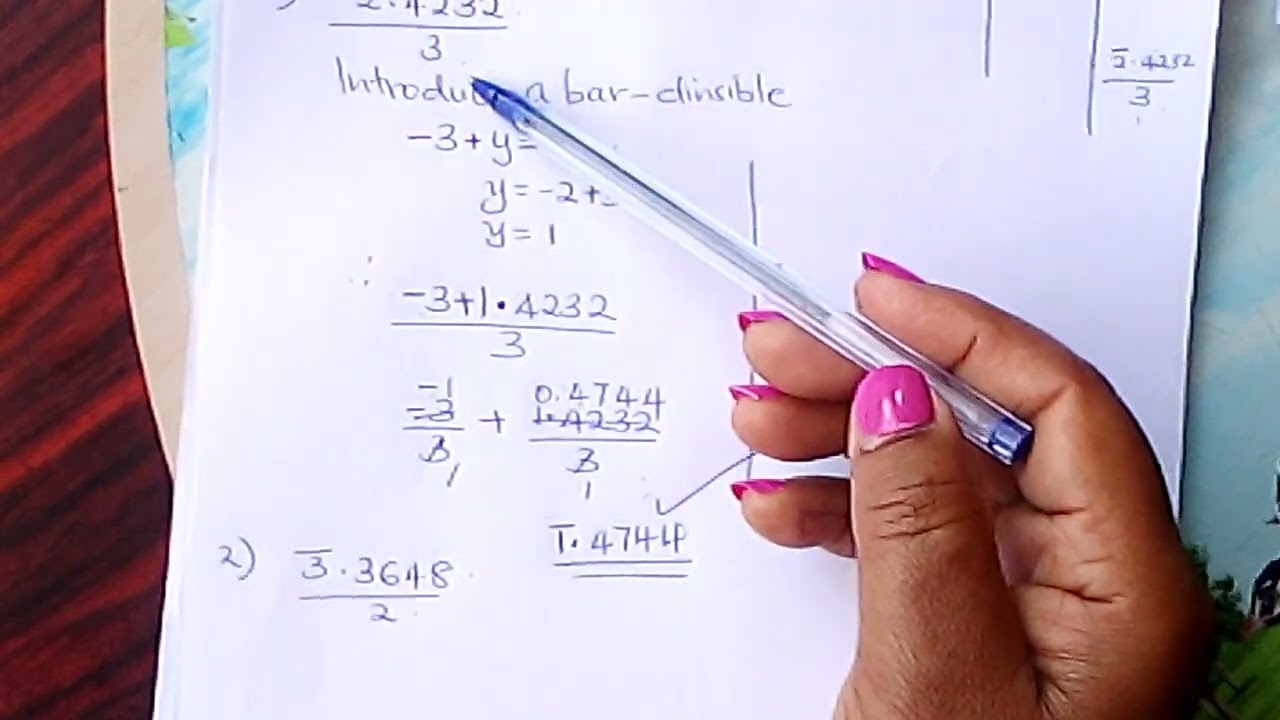 2.4232
3
Introduce a bar-dinsible
-3+y=
y=-2+
y=1
∴
-3+1.4232
3
-1 0.4744
-3 + 1.4232
3 3
1 1
1̅.4744
2) 3̅.3648
2
2̅.4232
3